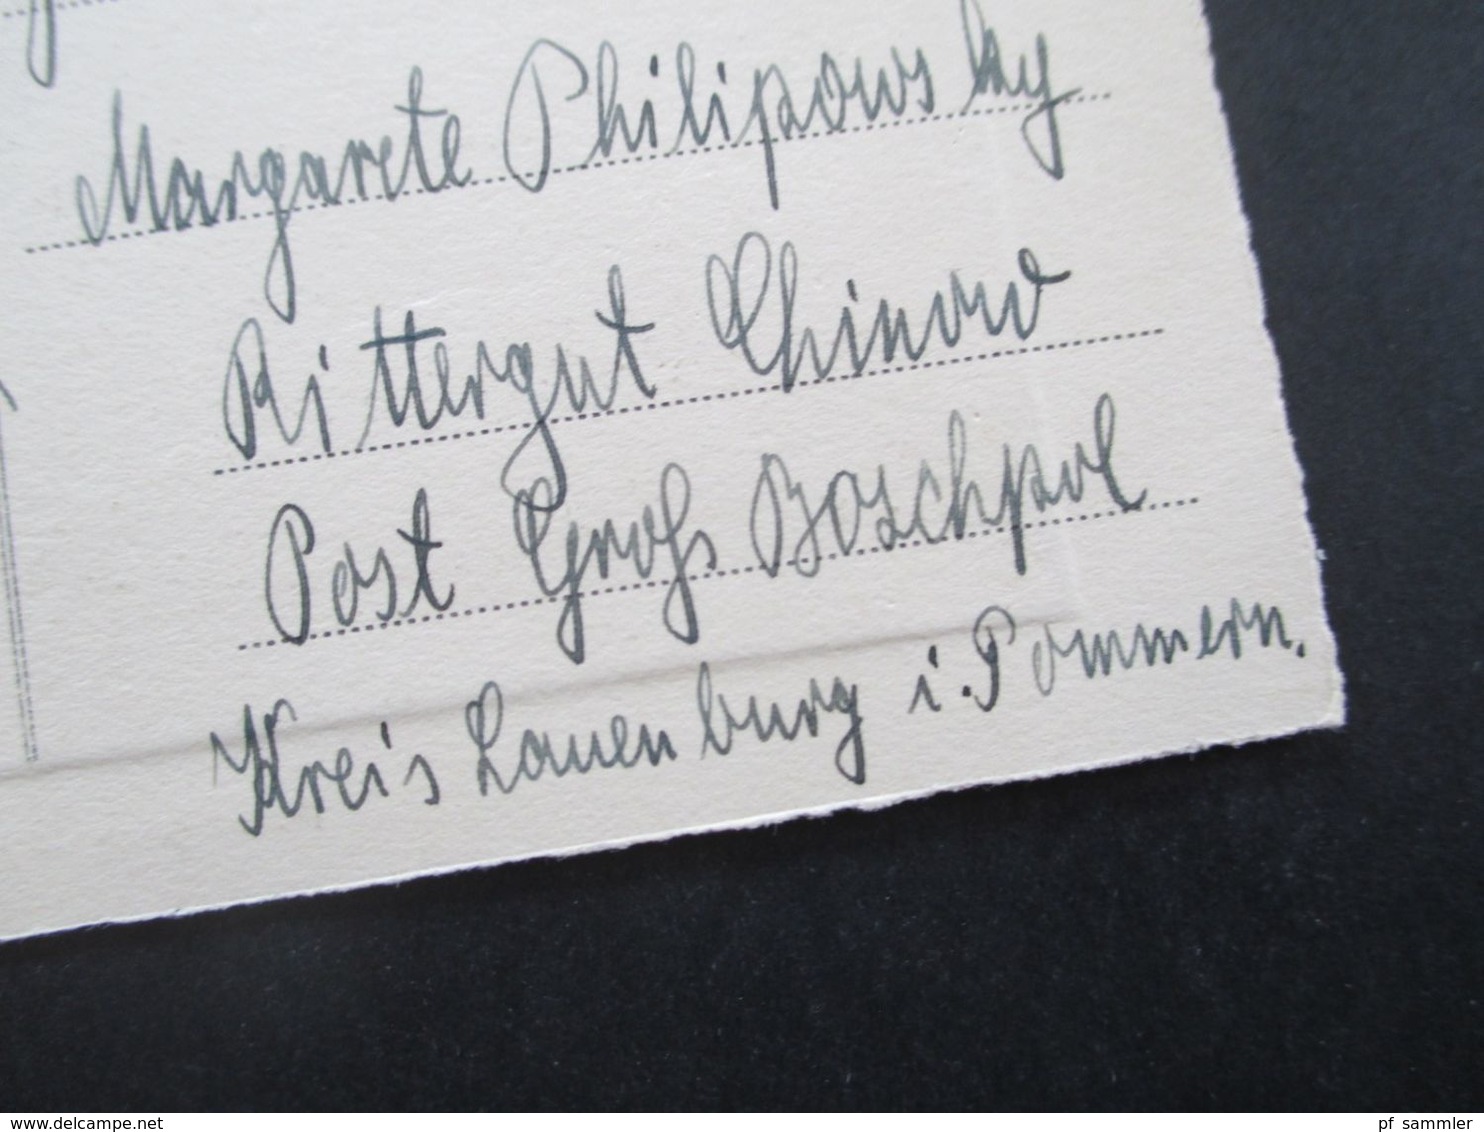 Margarete Philipowsky
Rittergut Chinow
Post Groß Boschpol
Kreis Lauenburg i. Pommern.
www.delcampe.net
pf_sammler